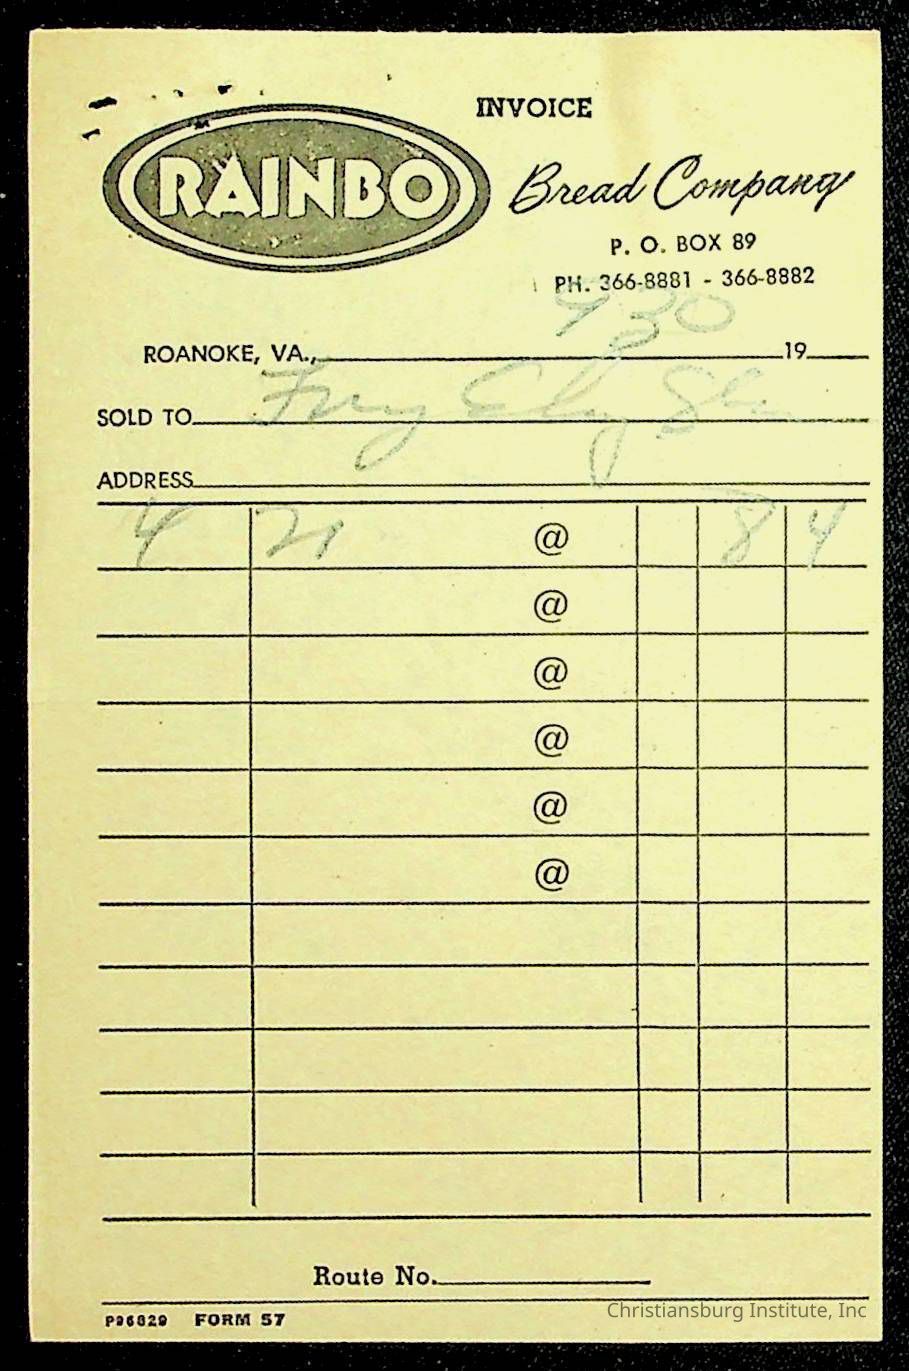 INVOICE
RAINBO
Bread Company
P. O. BOX 89
PH. 366-8881 - 366-8882
4 30
ROANOKE, VA., 19
SOLD TO
ADDRESS
4 21 @ 84
@
@
@
@
@
Route No.
P96829 FORM 57
Christiansburg Institute, Inc